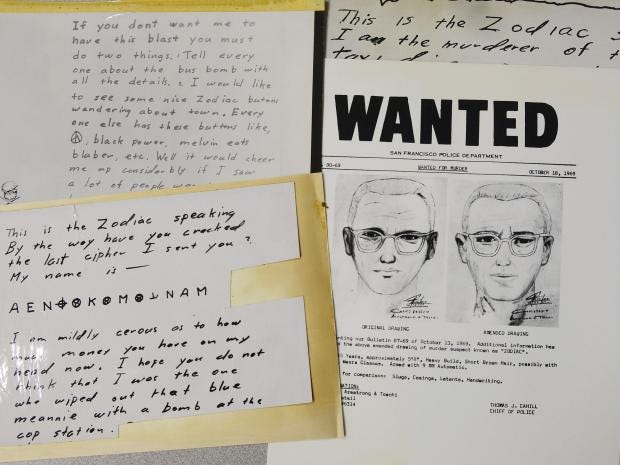 If you dont want me to
have this blast you must
do two things. 1 Tell every
one about the bus bomb with
all the details. 2 I would like
to see some nice Zodiac butons
wandering about town. Every
one else has these buttons like,
☮, black power, melvin eats
blaber, etc. Well it would cheer
me up considerbly if I saw
a lot of people
This is the Zodiac speaking
By the way have you cracked
the last cipher I sent you?
My name is —
A E N ⊕ K M ⊥ N A M
I am mildly cerous as to how
much money you have on my
head now. I hope you do not
think that I was the one
who wiped out that blue
meannie with a bomb at the
cop station.
This is the Zodiac
I am the murderer of
WANTED
SAN FRANCISCO POLICE DEPARTMENT
90-69
WANTED FOR MURDER
OCTOBER 18, 1969
ORIGINAL DRAWING
AMENDED DRAWING
our Bulletin 87-69 of October 13, 1969. Additional information has
the above amended drawing of murder suspect known as "ZODIAC".
Years, approximately 5'8", Heavy Build, Short Brown Hair, possibly with
Wears Glasses. Armed with 9 MM Automatic.
for comparison: Slugs, Casings, Latents, Handwriting.
Armstrong & Toschi
THOMAS J. CAHILL
CHIEF OF POLICE